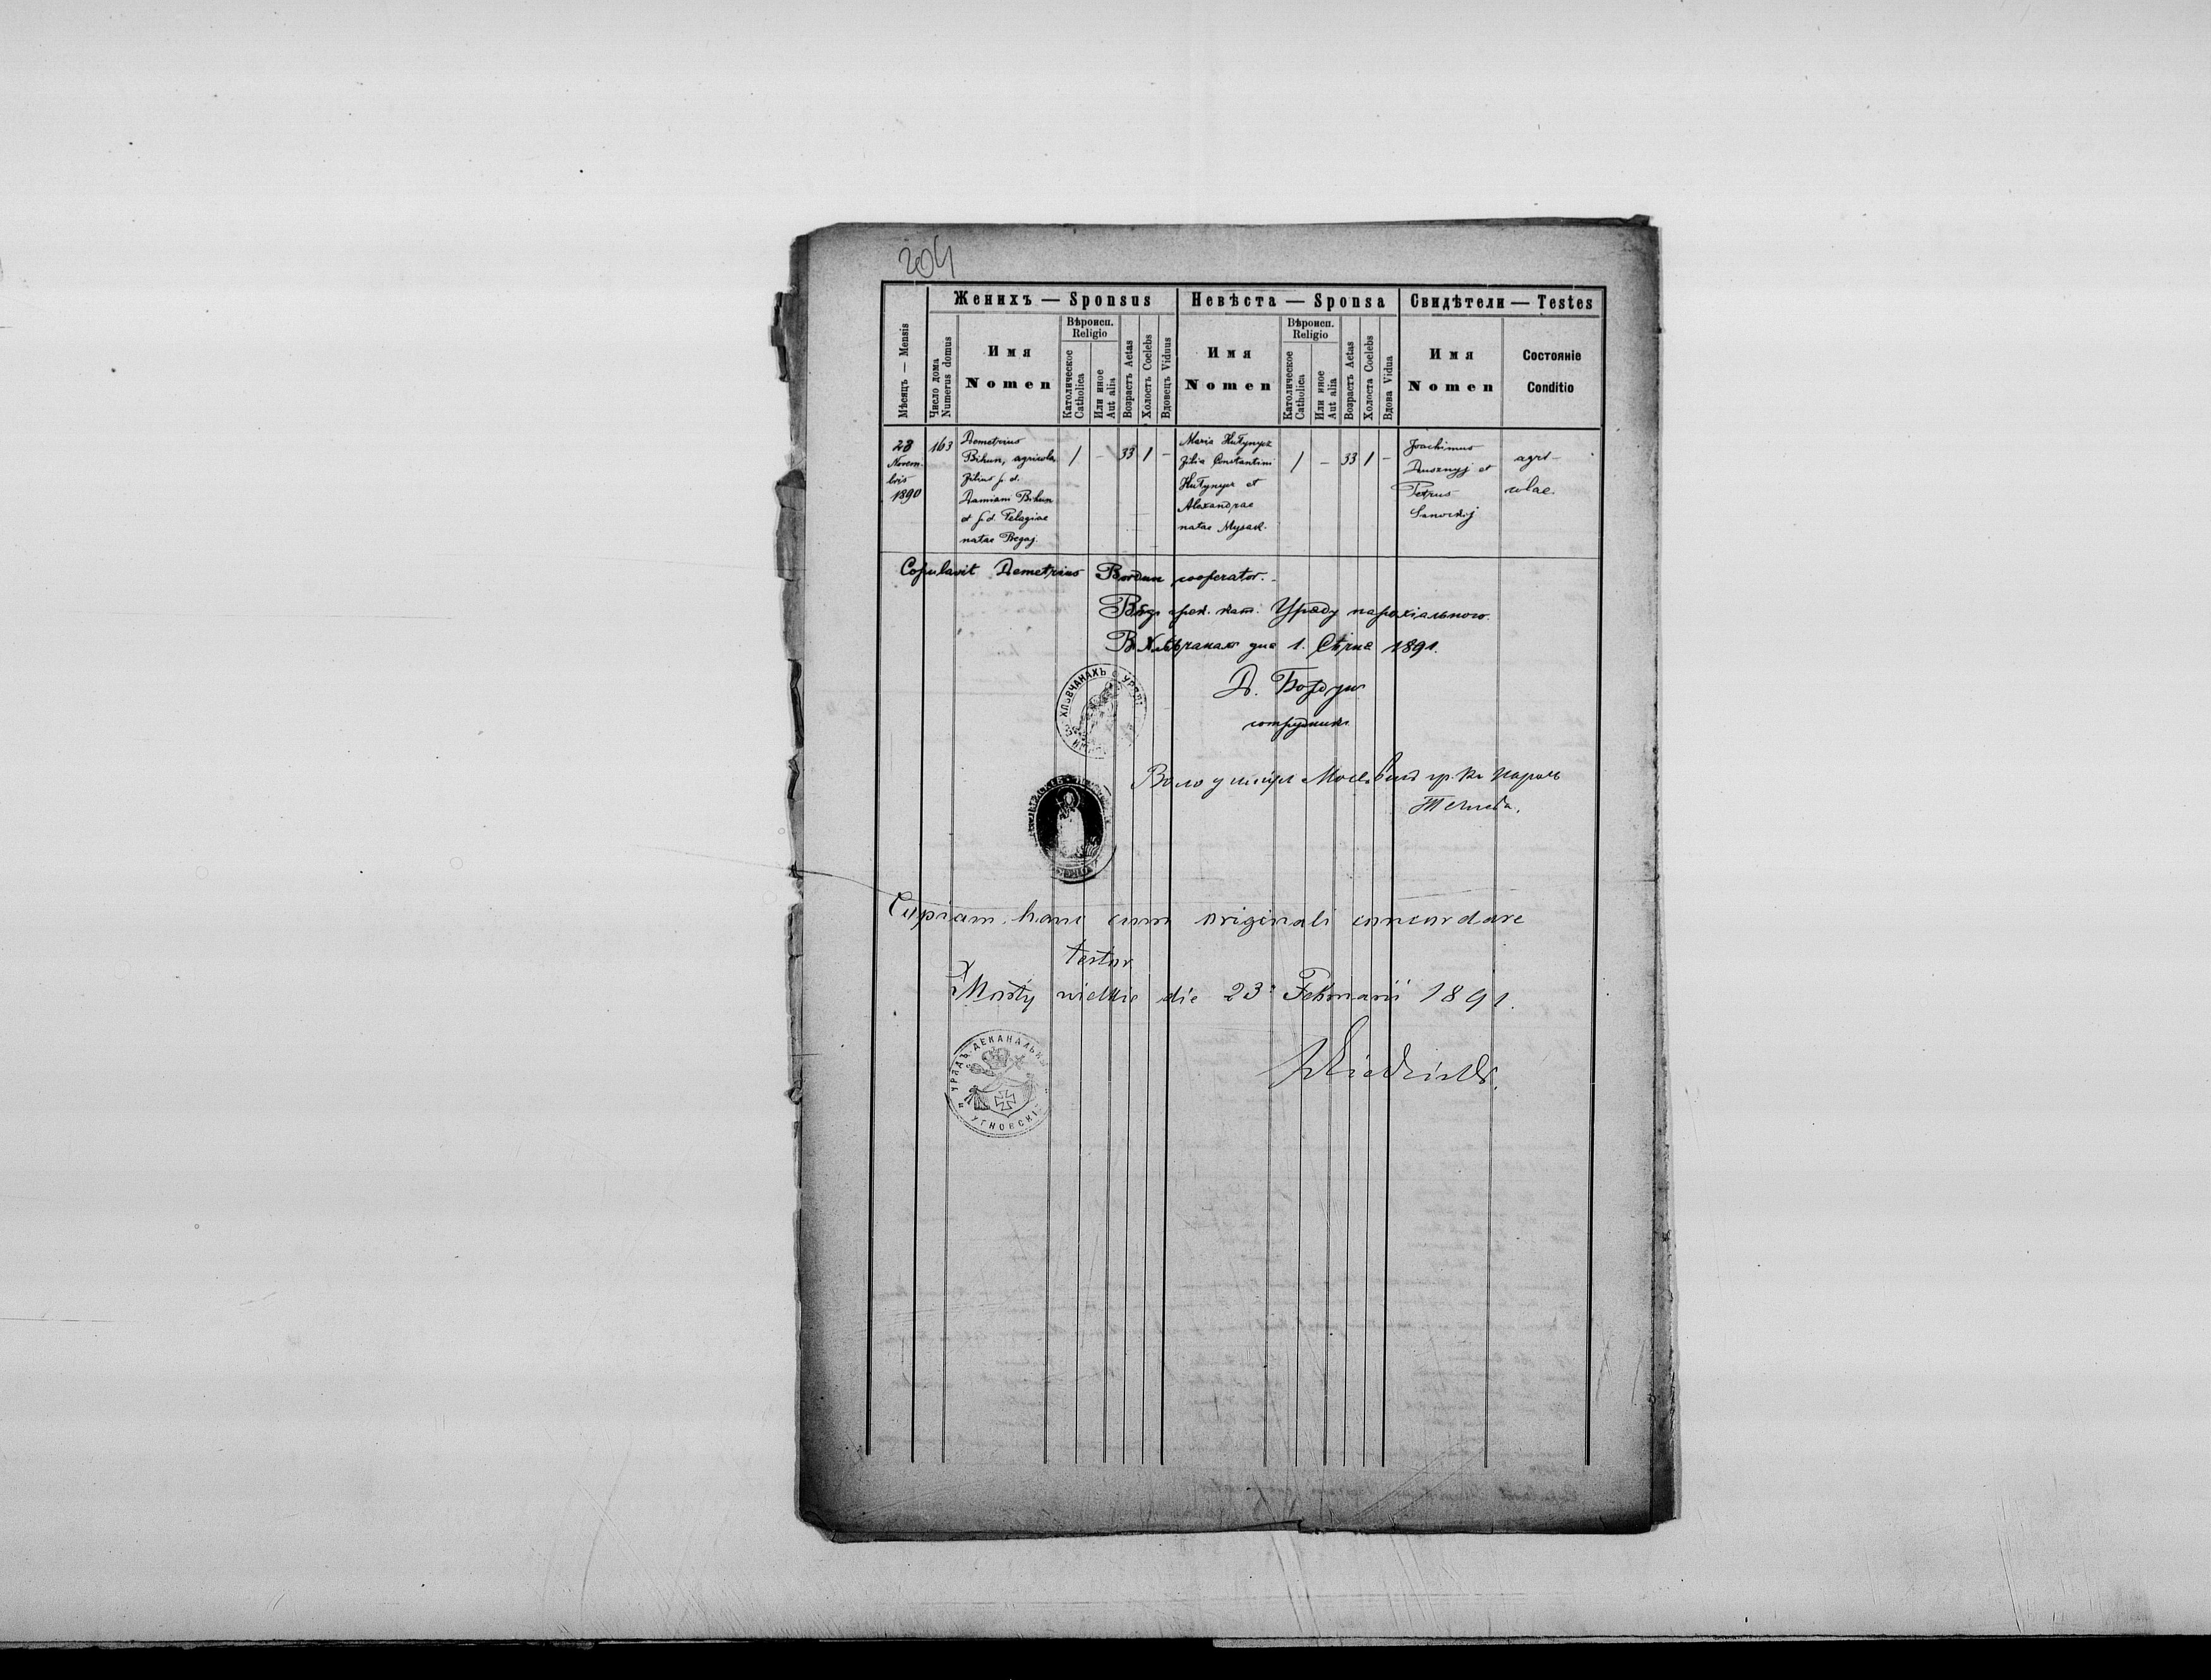 204
Женихъ — Sponsus
Невѣста — Sponsa
Свидѣтели — Testes
Мѣсяцъ — Mensis
Число дома
Numerus domus
Имя
Nomen
Вѣроисп.
Religio
Католическое
Catholica
Или иное
Aut alia
Возрастъ Aetas
Холостъ Coelebs
Вдовецъ Viduus
Имя
Nomen
Вѣроисп.
Religio
Католическое
Catholica
Или иное
Aut alia
Возрастъ Aetas
Холоста Coelebs
Вдова Vidua
Имя
Nomen
Состояніе
Conditio
28
Novem-
bris
1890
163
Demetrius
Bihun, agricola,
filius p. d.
Damiani Bihun
et p. d. Pelagiae
natae Begaj.
/
-
33
1
-
Maria
filia Constantini
et
Alexandrae
natae Mysak.
/
-
33
1
-
Joachimus
Dusznyj et
Petrus
Sanockij
agri-
colae.
Copulavit Demetrius Bordun cooperator.
Вôдъ грек. кат. Уряду парохіального.
В Хлѣвчанахъ дня 1. Сѣчня 1891.
Д. Бордун
сотрудникъ
ХЛѢВЧАНАХЪ
гр. к. парох
Copiam hanc cum originali concordare
testor
Mosty wielkie die 23 Februarii 1891.
УРЯДЪ ДЕКАНАЛЬНЫЙ
УГНОВСКІЙ